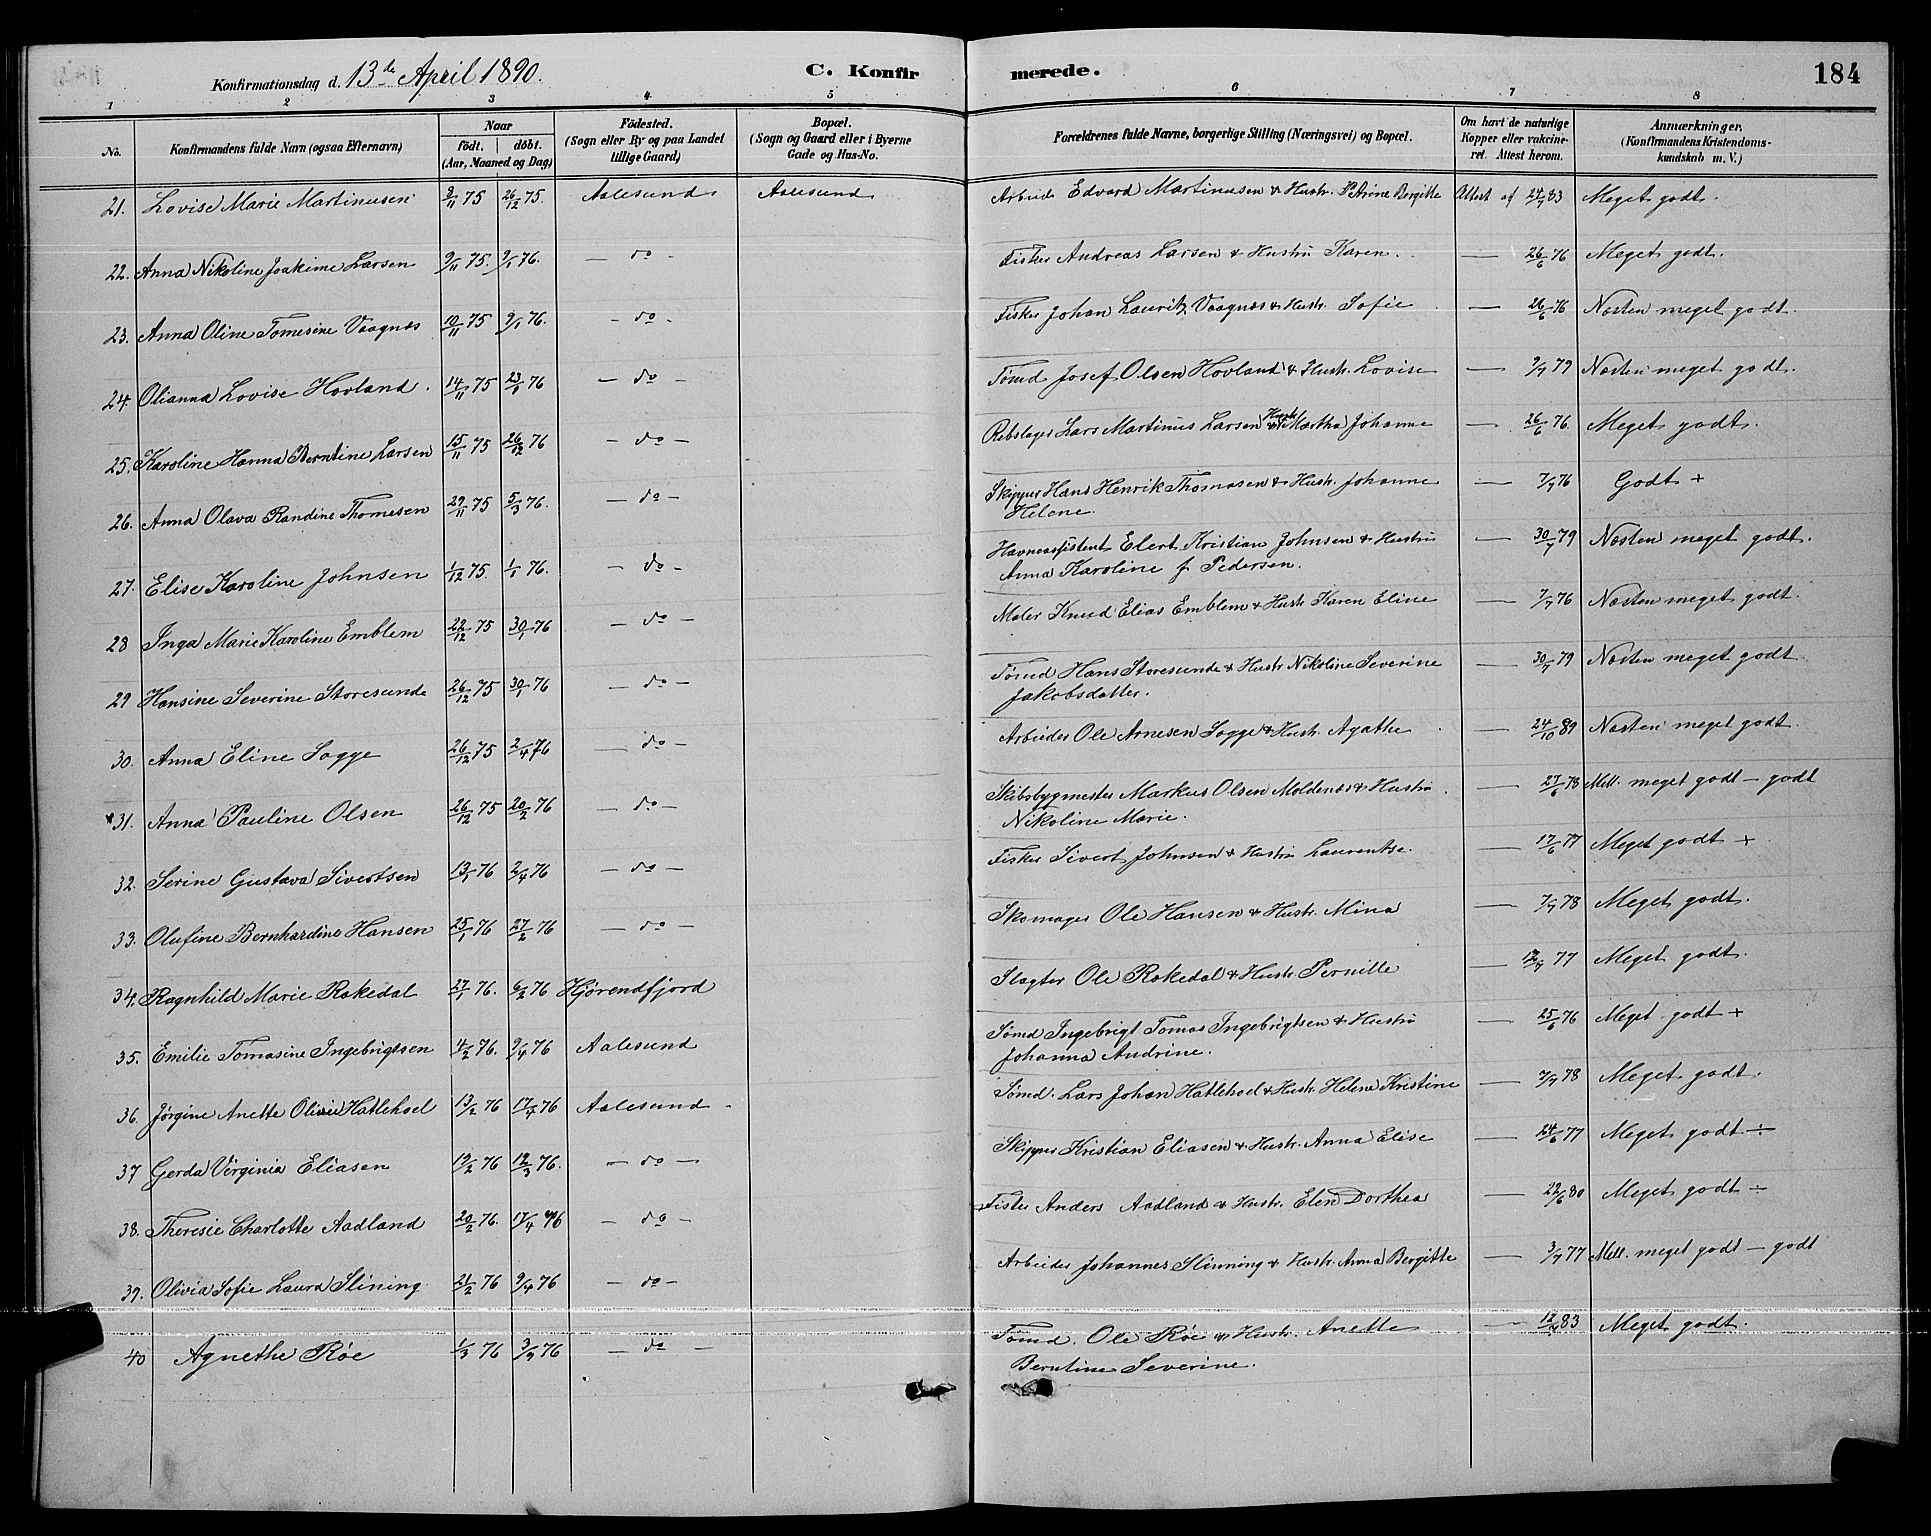 Konfirmationsdag d. 13de April 1890. C. Konfirmerede. 184
1 2 3 4 5 6 7 8
No. Konfirmandens fulde Navn (ogsaa Efternavn) Naar födt. döbt. (Aar, Maaned og Dag) Födested. (Sogn eller By og paa Landet tillige Gaard) Bopæl. (Sogn og Gaard eller i Byerne Gade og Hus-No. Forældrenes fulde Navne, borgerlige Stilling (Næringsvei) og Bopæl. Om havt de naturlige Kopper eller vakcineret. Attest herom. Anmærkninger. (Konfirmandens Kristendomskundskab m. V.)
21. Lovise Marie Martinusen 9/11 75 26/12 75. Aalesund Aalesund Arbeider Edvard Martinusen & Hustr. Petrine Bergitte Attest af 24/7 83 Meget godt.
22. Anna Nikoline Joakime Larsen 9/11 75. 9/1 76. — do — Fisker Andreas Larsen & Hustru Karen. — 26/6 76 Meget godt.
23. Anna Oline Tomesine Vaagnæs 10/11 75 9/1 76. — do — Fisker Johan Lauritz Vaagnæs & Hustr. Sofie — 26/6 76 Næsten meget godt.
24. Olianna Lovise Hovland. 14/11 75 23/1 76 — do — Tømd Josef Olsen Hovland & Hustr. Lovise — 9/7 79 Næsten meget godt.
25. Karoline Hanna Berntine Larsen 15/11 75 26/12 76 — do — Rebslager Lars Martinus Larsen & Hustr. Martha Johanne — 26/6 76 Meget godt.
26. Anna Olava Randine Thomesen 29/11 75 5/3 76. — do — Skipper Hans Henrik Thomasen & Hustr. Johanne Helene. — 7/7 76 Godt +
27. Elise Karoline Johnsen 1/12 75. 1/1 76. — do — Havneassistent Elert Kristian Johnsen & Hustru Anna Karoline f. Pedersen. — 30/7 79 Næsten meget godt.
28 Inga Marie Karoline Emblem 22/12 75 30/1 76 — do — Maler Knud Elias Emblem & Hustr. Karen Eline — 7/7 76 Næsten meget godt.
29 Hansine Severine Storesunde 26/12 75 30/1 76 — do — Tømd Hans Storesunde & Hustr. Nikoline Severine Jakobsdatter. — 30/7 79 Næsten meget godt
30. Anna Eline Sogge 26/12 75 2/4 76 — do — Arbeider Ole Arnesen Sogge & Hustr. Agathe — 24/10 89 Næsten meget godt.
*31. Anna Pauline Olsen 26/12 75 20/2 76 — do — Skibsbygmester Markus Olsen Moldenæs & Hustru Nikoline Marie. — 27/6 78 Mell. meget godt — godt
32. Serine Gustava Sivertsen 13/1 76 2/4 76 — do — Fisker Sivert Johnsen & Hustru Laurentse. — 17/6 77 Meget godt +
33. Olufine Bernhardine Hansen 25/1 76 27/2 76 — do — Skomager Ole Hansen & Hustr. Mina — 7/7 78 Meget godt.
34. Ragnhild Marie Rakedal 27/1 76. 6/2 76 Hjørendfjord Slagter Ole Rakedal & Hustr. Pernille — 12/7 77 Meget godt.
35. Emilie Tomasine Ingebrigtsen 4/2 76. 9/4 76 Aalesund Sømd Ingebrigt Tomas Ingebrigtsen & Hustru Johanna Andrine. — 25/6 76 Meget godt +
36. Jørgine Anette Olivie Hatlehoel 13/2 76 17/4 76 Aalesund Sømd. Lars Johan Hatlehoel & Hustr. Helena Kristine — 7/7 78 Meget godt.
37 Gerda Virginia Eliasen 13/2 76 12/3 76. — do — Skipper Kristian Eliasen & Hustr. Anna Elise — 24/6 77 Meget godt ÷
38. Theresie Charlotte Aadland 20/2 76. 17/4 76 — do — Fisker Anders Aadland & Hustr. Elen Dorthea — 22/6 80 Meget godt ÷
39. Olivia Sofie Laura Slining. 21/2 76 9/4 76 — do — Arbeider Johannes Slinning & Hustr. Anna Bergitte — 3/7 77 Mell. meget godt — godt
40 Agnethe Røe 1/3 76 3/9 76 — do — Tømd. Ole Røe & Hustr. Anette Berntine Severine. — 12/7 83 Meget godt.